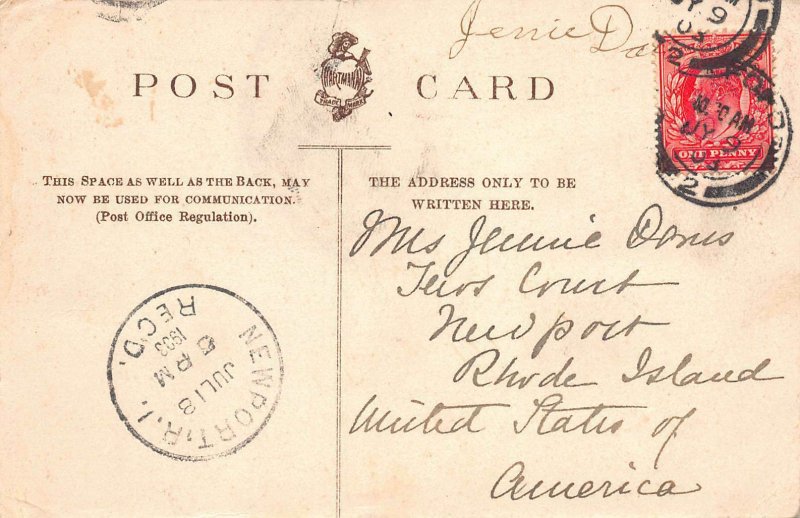 Jennie
POST CARD
HARTMANN
TRADE MARK
THIS SPACE AS WELL AS THE BACK, MAY
NOW BE USED FOR COMMUNICATION.
(Post Office Regulation).
THE ADDRESS ONLY TO BE
WRITTEN HERE.
ONE PENNY
JY 9
03
2
10.30 AM
JY 9
03
2
Jennie
Court
Newport
Rhode Island
United States of
America
NEWPORT, R.I.
REC'D.
1903
6 PM
JUL 18